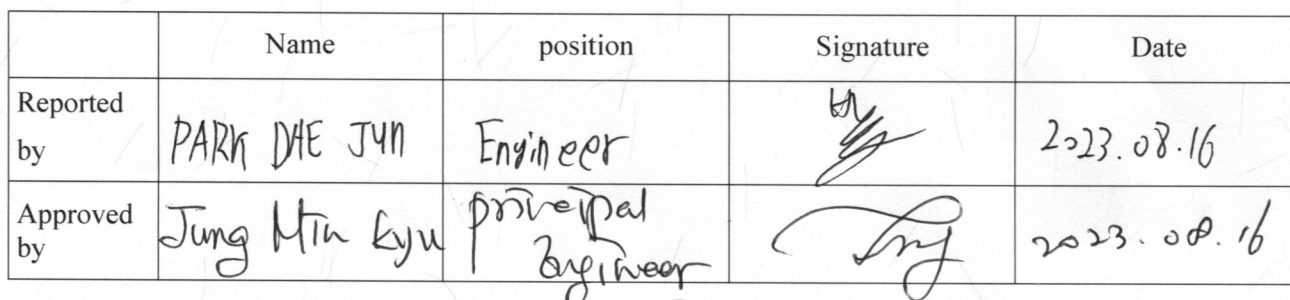 Name position Signature Date
Reported by PARK DAE JUN Engineer 2023.08.16
Approved by Jung Min Kyu principal Engineer 2023.08.16